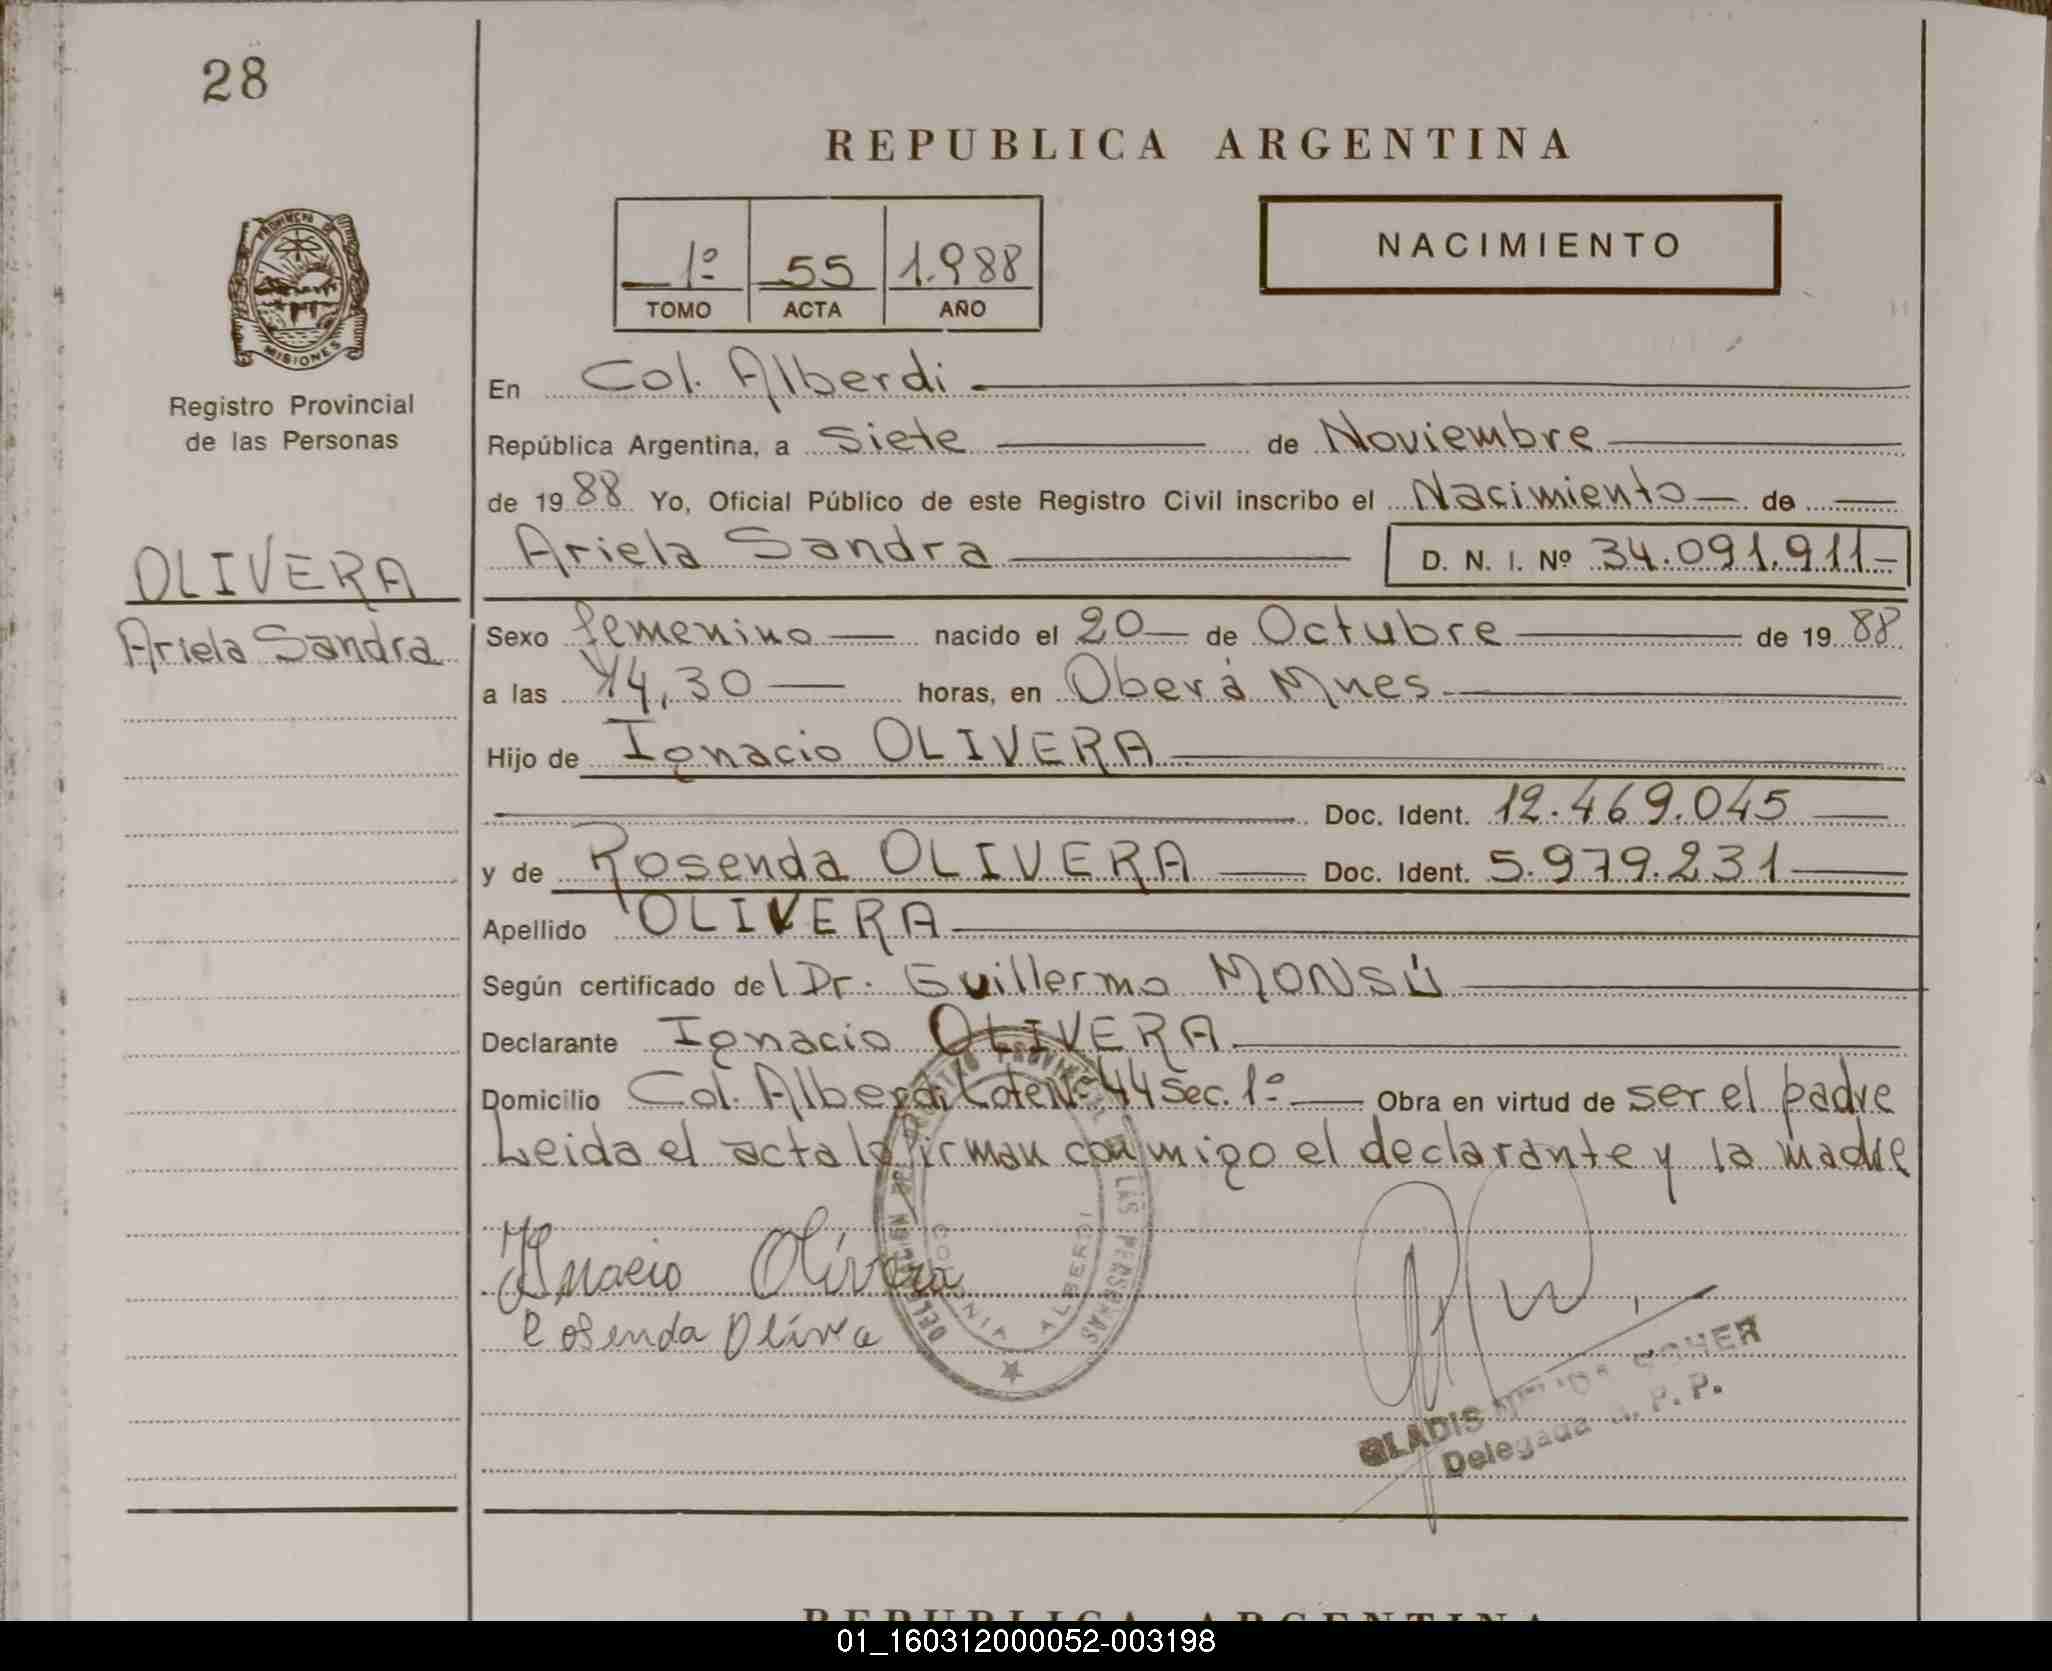 28
REPUBLICA ARGENTINA
NACIMIENTO
1º 55 1.988
TOMO ACTA AÑO
PROVINCIA DE
MISIONES
Registro Provincial
de las Personas
OLIVERA
Ariela Sandra
En Col. Alberdi
República Argentina, a Siete de Noviembre
de 1988 Yo, Oficial Público de este Registro Civil inscribo el Nacimiento de
Ariela Sandra D. N. I. Nº 34.091.911-
Sexo femenino nacido el 20 de Octubre de 1988
a las 14,30 horas, en Oberá Mnes
Hijo de Ignacio OLIVERA
Doc. Ident. 12.469.045
y de Rosenda OLIVERA Doc. Ident. 5.979.231
Apellido OLIVERA
Según certificado del Dr. Guillermo MONSÚ
Declarante Ignacio OLIVERA
Domicilio Col. Alberdi Lote Nº 44 Sec. 1º Obra en virtud de ser el padre
Leida el acta la firman conmigo el declarante y la madre
Ignacio Olivera
Rosenda Olivera
COLONIA ALBERDI
DE LAS PERSONAS
GLADIS
Delegada R. P. P.
REPUBLICA ARGENTINA
01_160312000052-003198